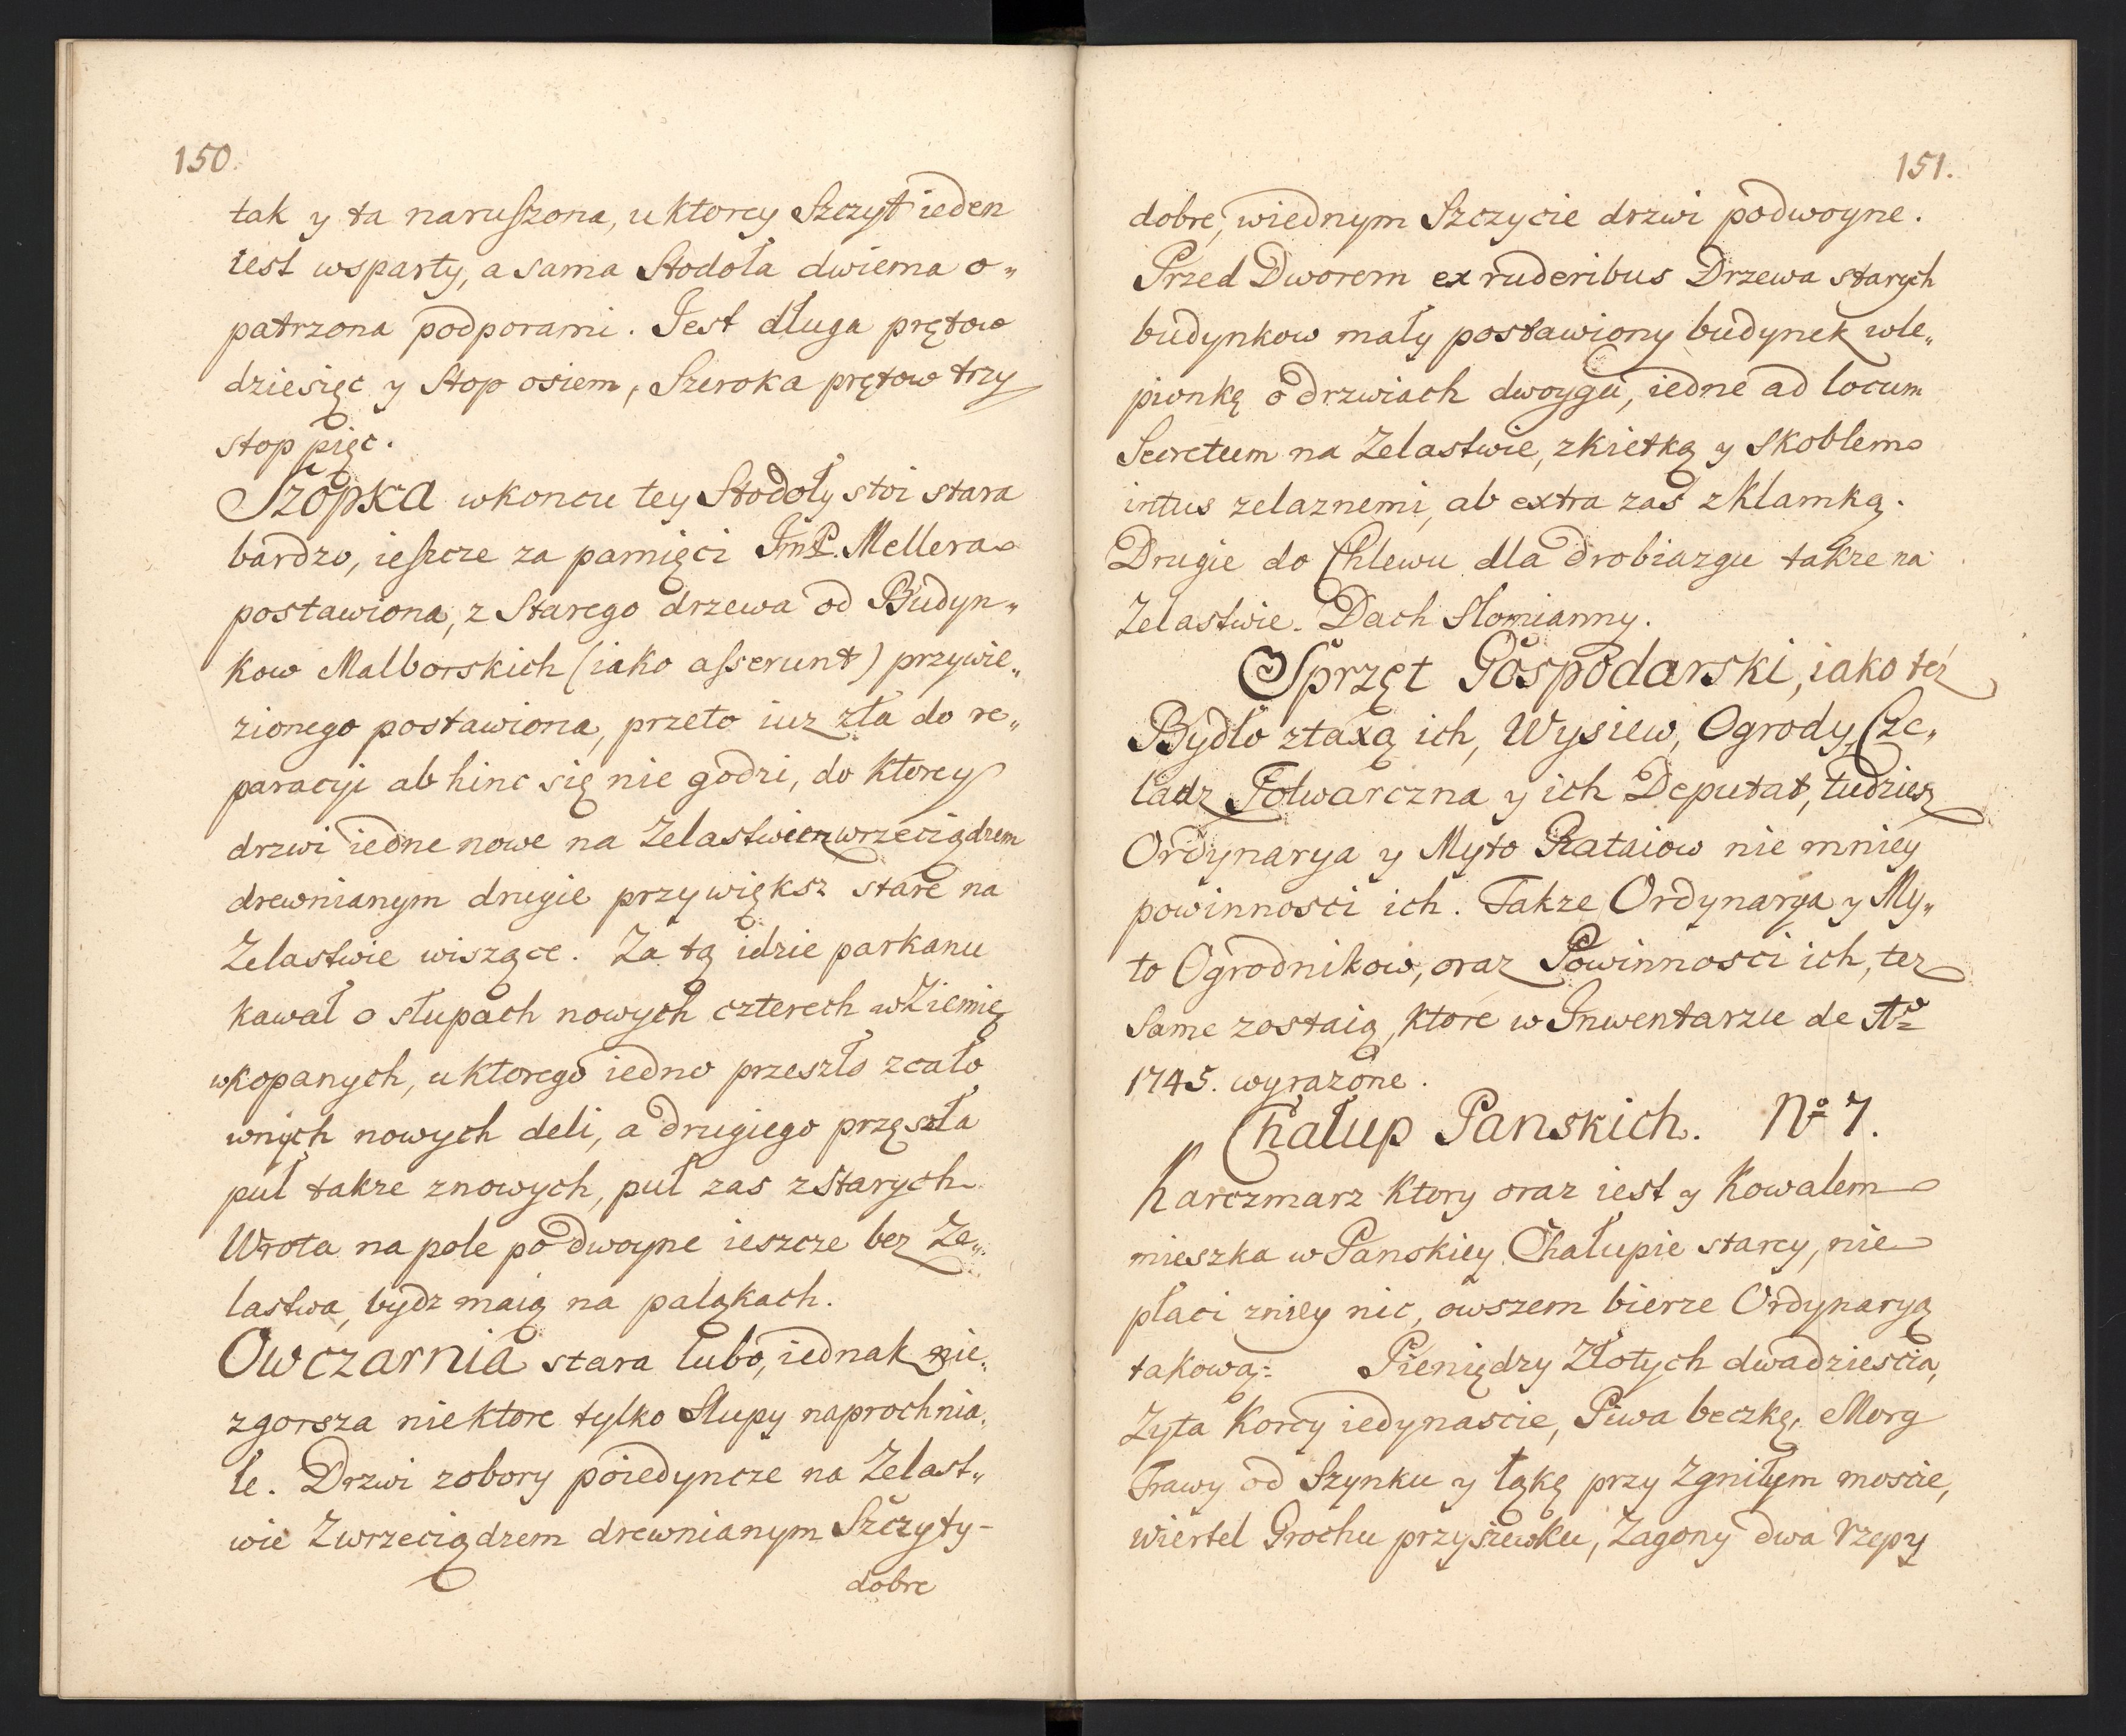 150.
tak y ta naruszona, u ktorey Szczyt ieden
iest wsparty, a sama Stodoła dwiema o„
patrzona podporami. Jest długa prętow
dziesięc y Stop osiem, Szeroka prętow trzy
stop pięc.
Szopka w koncu tey Stodoły stoi stara
bardzo, ieszcze za pamięci JmP. Mellera
postawiona, z Starego drzewa od Budyn„
kow Malborskich (iako asserunt) przywie„
zionego postawiona, przeto iuz zła do re„
paracyi ab hinc się nie godzi, do ktorey
drzwi iedne nowe na Zelastwie z wrzeciądzem
drewnianym drugie przywiększ stare na
Zelastwie wiszące. Za tą idzie parkanu
kawał o słupach nowych czterech w Ziemię
wkopanych, u ktorego iedno przeszło z cało
wnych nowych deli, a drugiego przęszła
puł takze z nowych, puł zas z starych
Wrota na pole podwoyne ieszcze bez Ze„
lastwa, bydz maią na paląkach.
Owczarnia stara lubo, iednak nie„
zgorsza niektore tylko Słupy naprochnia„
łe. Drzwi z obory poiedyncze na Zelast„
wie Z wrzeciądzem drewnianym Szczyty-
dobre
151.
dobre, w iednym Szczycie drzwi podwoyne.
Przed Dworem ex ruderibus Drzewa starych
budynkow mały postawiony budynek w le„
pionkę o drzwiach dwoygu, iedne ad locum
Secretum na Zelastwie, z kietką y Skoblem
intus zelaznemi, ab extra zaś z Klamką.
Drugie do Chlewu dla drobiazgu takze na
Zelastwie. Dach Słomianny.
Sprzęt Gospodarski, iako też
Bydło z taxą ich, Wysiew, Ogrody, Cze„
ladz Folwarczna y ich Deputat, tudziesz
Ordynarya y Myto Rataiow nie mniey
powinnosci ich. Takze Ordynarya y My„
to Ogrodnikow, oraz Powinnosci ich, tez
same zostaią, ktore w Inwentarzu de Aº
1745. wyrazone.
Chałup Panskich. Nº 7.
Karczmarz ktory oraz iest y Kowalem
mieszka w Panskiey Chałupie starey, nie
płaci z niey nic, owszem bierze Ordynaryą
takową: Pieniędzy Złotych dwadziescia,
Zyta Korcy iedynascie, Piwa beczkę, Morg
Trawy od Szynku y łąkę przy Zgniłym moscie,
wiertel Grochu przysiewku, Zagony dwa rzepy